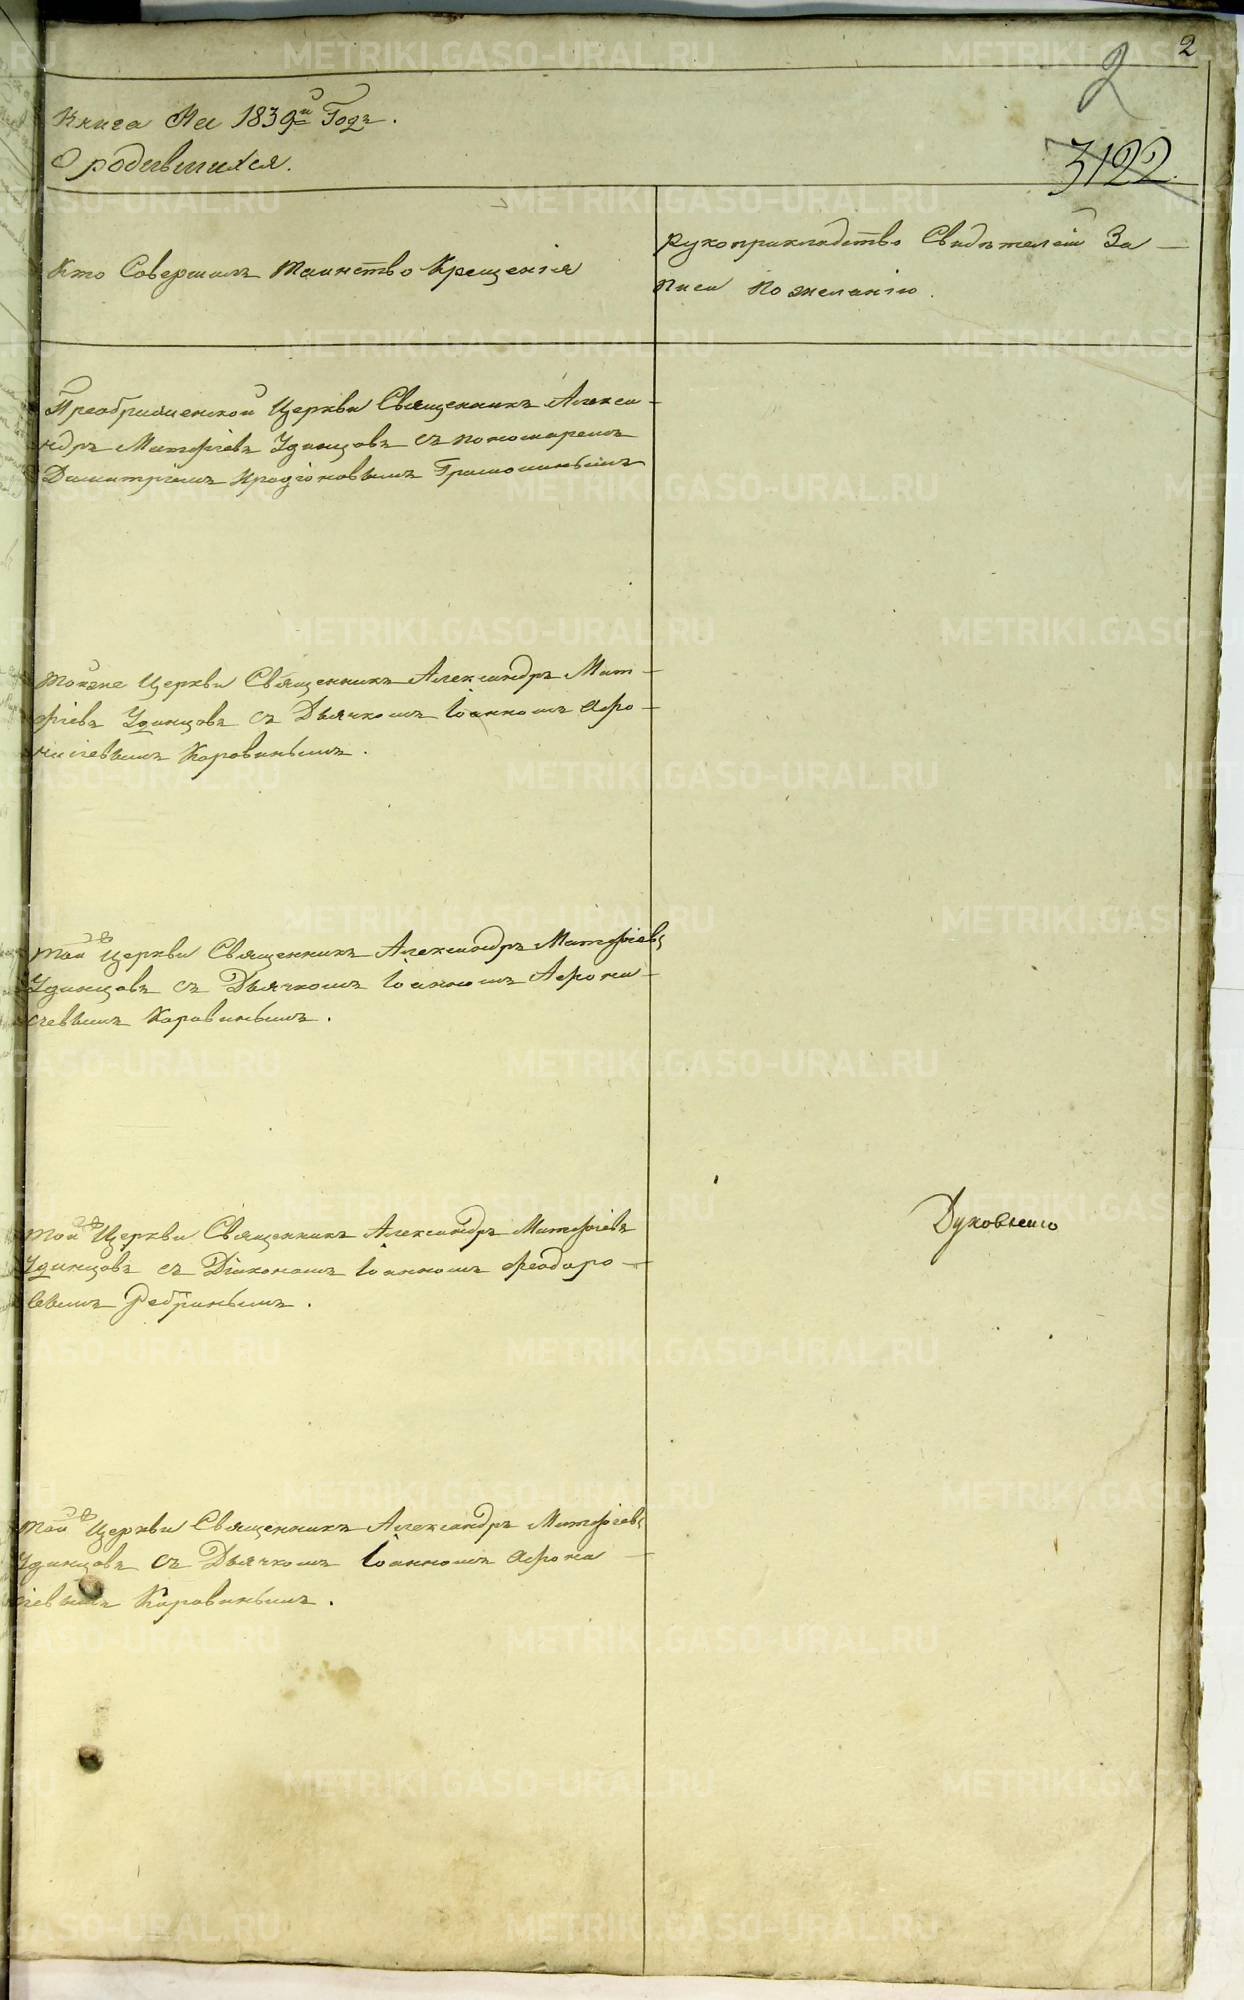 2
2
Книга На 1839й Годъ.
О родившихся.
3122.
Кто Совершалъ таинство Крещенія
рукоприкладство Свидѣтелей За-
писи по желанію.
Преображенской Церкви Священникъ Алекса-
ндръ Матфіевъ Удинцовъ съ пономаремъ
Димитріемъ Иродіоновымъ
тойже Церкви Священникъ Александръ Мат-
фіевъ Удинцовъ съ Дьячкомъ Іоанномъ Афо-
насіевымъ Коровинымъ.
той же Церкви Священникъ Александръ Матфіевъ
Удинцовъ съ Дьячкомъ Іоанномъ Афона-
сіевымъ Коровинымъ.
той же Церкви Священникъ Александръ Матфіевъ
Удинцовъ съ Діакономъ Іоанномъ Феодоро-
вымъ Ребринымъ.
Духовнаго
той же Церкви Священникъ Александръ Матфіевъ
Удинцовъ съ Дьячкомъ Іоанномъ Афона-
сіевымъ Коровинымъ.
METRIKI.GASO-URAL.RU